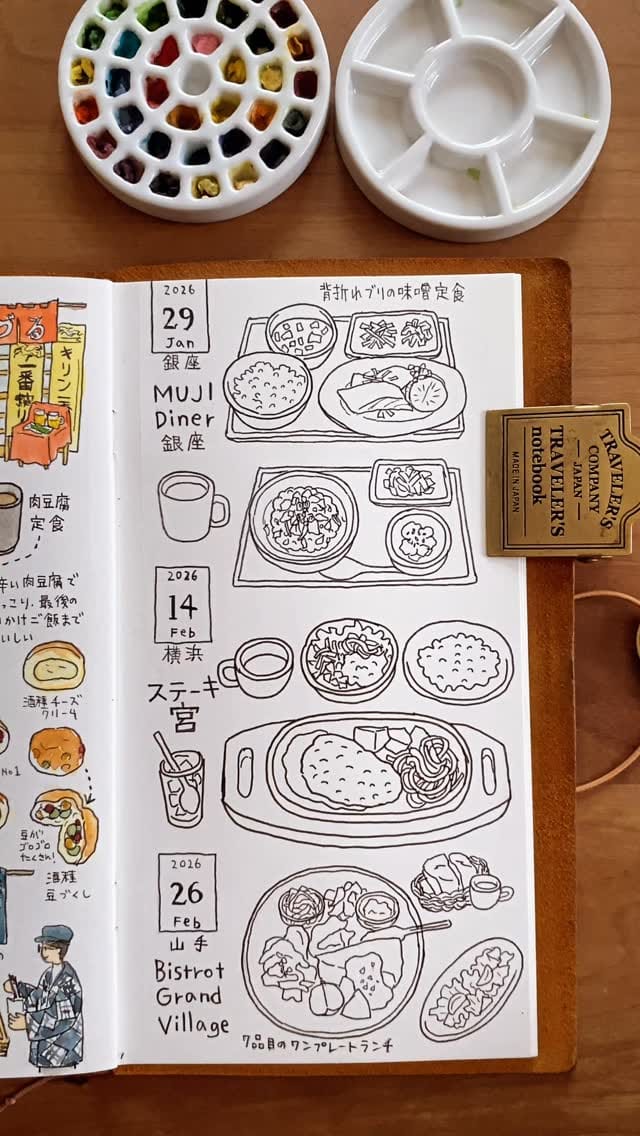 づる
キリン
一番搾り
肉豆腐
定食
辛い肉豆腐で
っこり、最後の
かけご飯まで
いしい
酒種チーズ
クリーム
No1
豆が
ゴロゴロ
たくさん!
酒種
豆づくし
2026
29
Jan
銀座
MUJI
Diner
銀座
背折れブリの味噌定食
2026
14
Feb
横浜
ステーキ
宮
2026
26
Feb
山手
Bistrot
Grand
Village
7品目のワンプレートランチ
TRAVELER'S
COMPANY
JAPAN
TRAVELER'S
notebook
MADE IN JAPAN